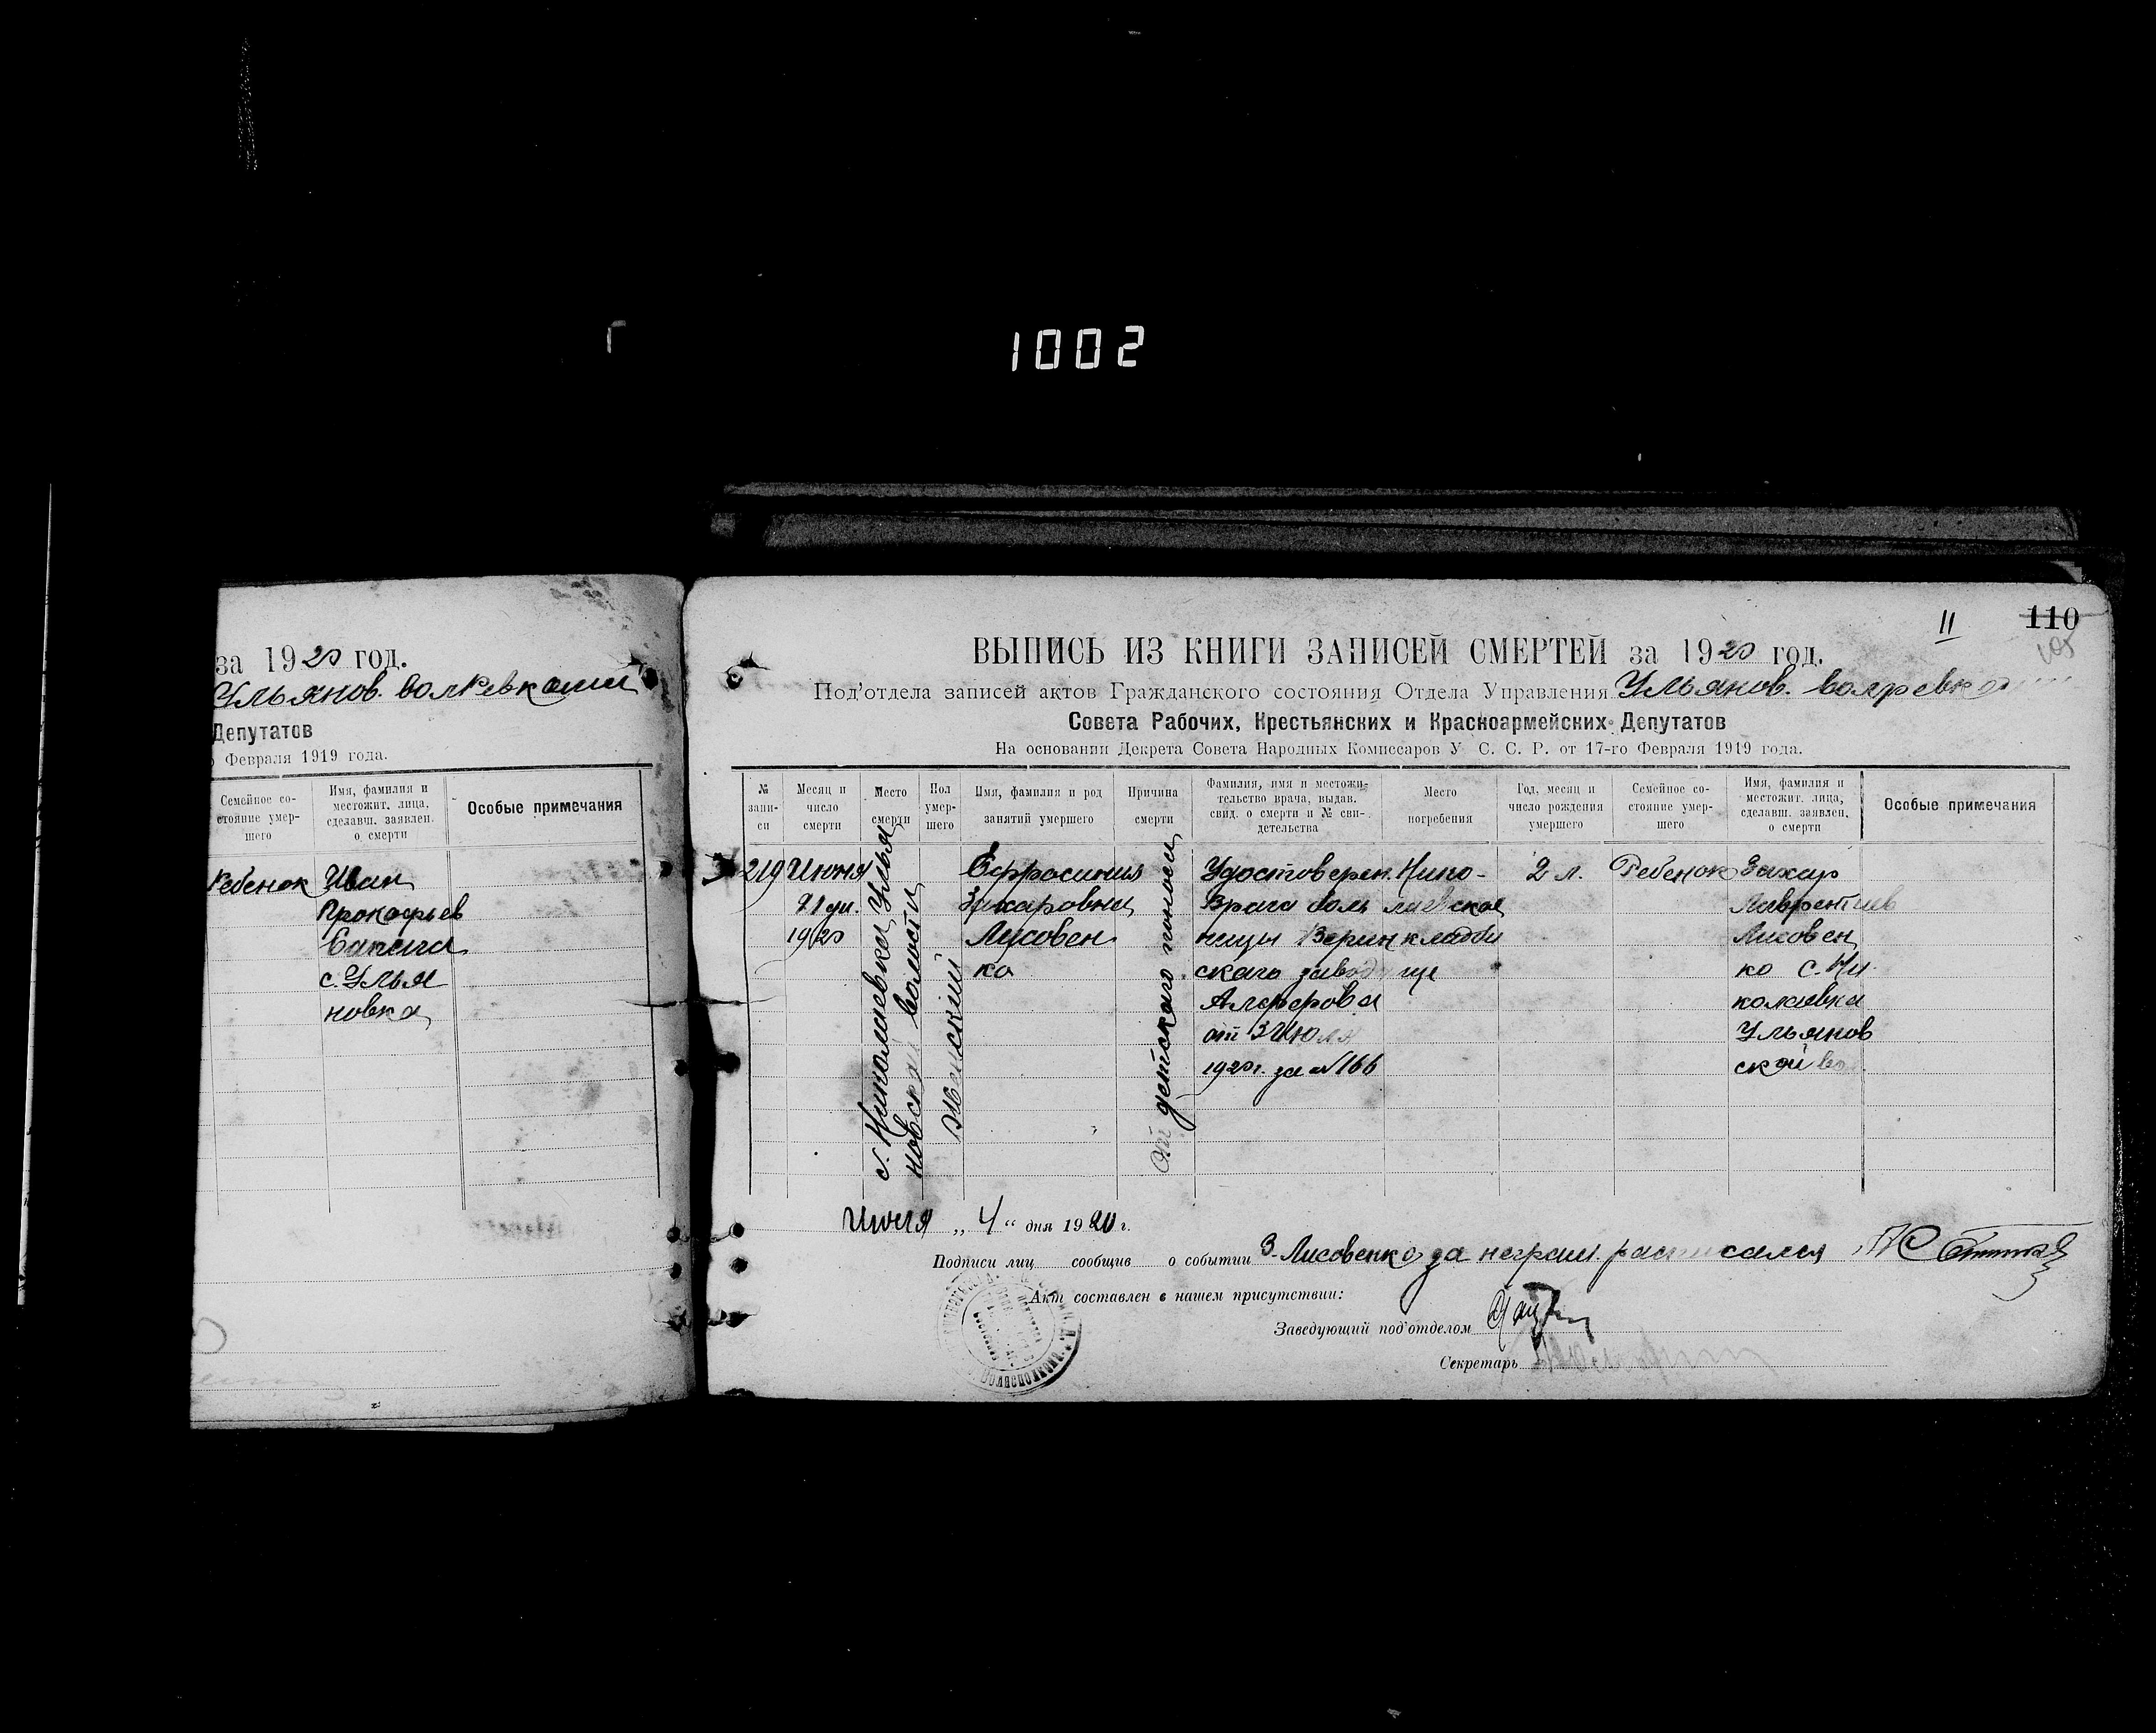 1002
за 1920 год.
Ульянов. волревкома
Депутатов
Февраля 1919 года.
Семейное со-
стояние умер-
шего
Имя, фамилия и
местожит. лица,
сделавш. заявлен.
о смерти
Особые примечания
Ребенок
Иван
Прокофьев
с. Улья
новка
II
110
105
ВЫПИСЬ ИЗ КНИГИ ЗАПИСЕЙ СМЕРТЕЙ за 1920 год.
Под'отдела записей актов Гражданского состояния Отдела Управления Ульянов. волревкома
Совета Рабочих, Крестьянских и Красноармейских Депутатов
На основании Декрета Совета Народных Комиссаров У. С. С. Р. от 17-го Февраля 1919 года.
№
запи-
си
Месяц и
число
смерти
Место
смерти
Пол
умер-
шего
Имя, фамилия и род
занятий умершего
Причина
смерти
Фамилия, имя и местожи-
тельство врача, выдав.
свид. о смерти и № сви-
детельства
Место
погребения
Год, месяц и
число рождения
умершего
Семейное со-
стояние умер-
шего
Имя, фамилия и
местожит. лица,
сделавш. заявлен.
о смерти
Особые примечания
219
Июня
21 дн.
1920
с. Николаевка Улья
новской волости
Женский
Ефросиния
Захаровна
Лисовен
ко
От детского поноса
Удостоверен.
Врача боль
ницы Верин
скаго завод
Алферова
от 3 Июля
1920 г. за № 166
Нико-
лаевское
кладби
ще
2 л.
Ребенок
Захар
Лаврентиев
Лисовен
ко с. Ни
колаевка
Ульянов
ской во
Июля „4“ дня 1920 г.
Подписи лиц сообщив о событии З. Лисовенко за неграм. расписался
Акт составлен в нашем присутствии:
Заведующий под'отделом
Секретарь